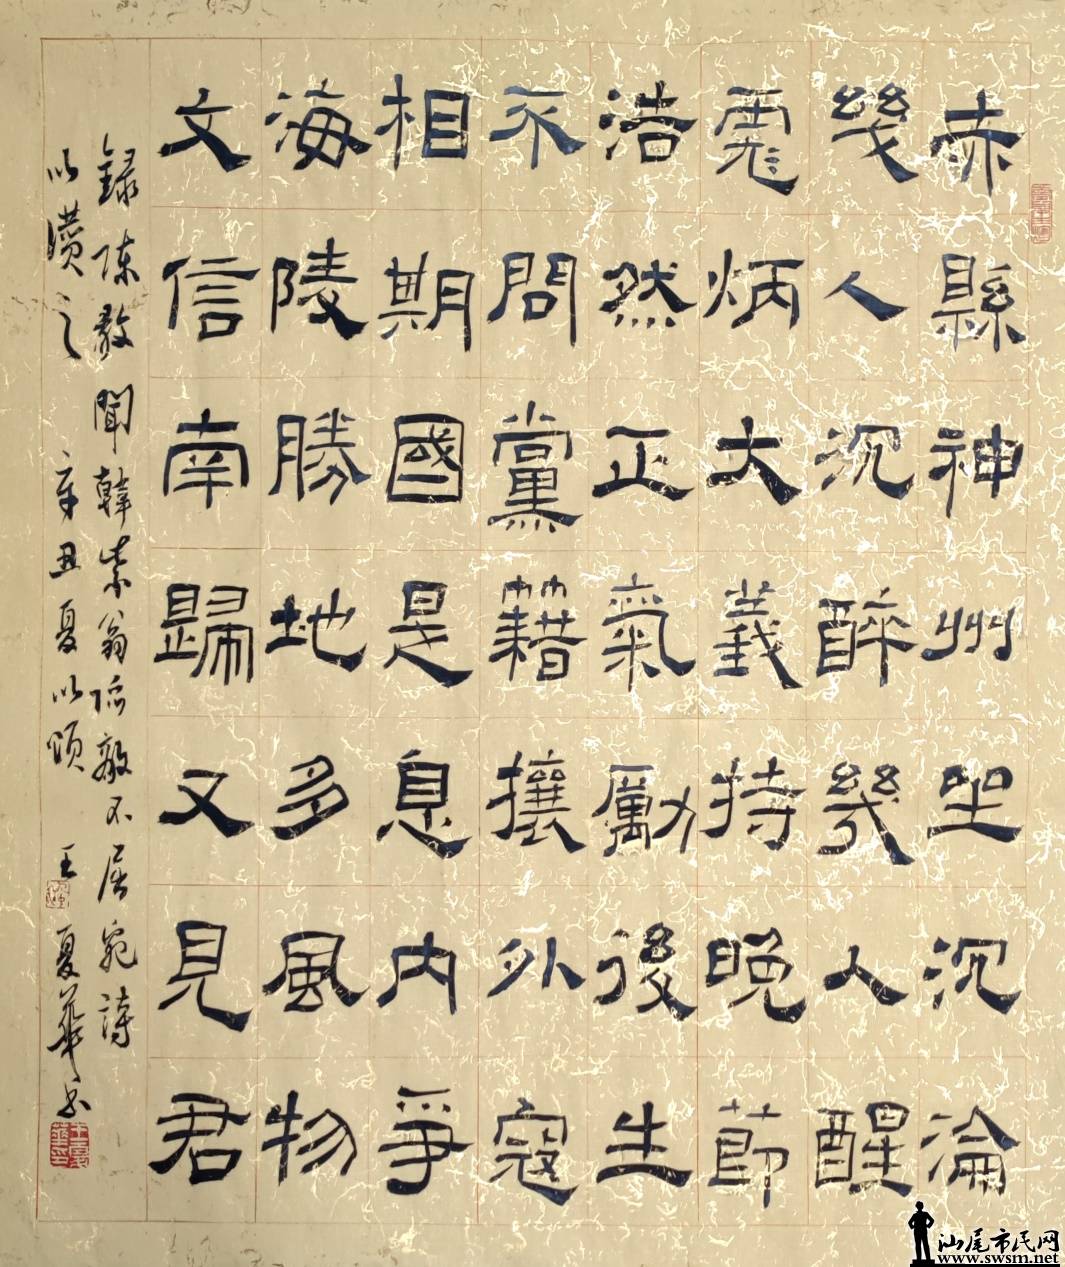 赤縣神州坐沉淪
幾人沉醉幾人醒
彪炳大義持晚節
浩然正氣勵後生
不問黨籍攘外寇
相期國是息内爭
海陵勝地多風物
文信南歸又見君
録陳毅聞韓紫翁陷敵不屈宛詩
以讚之 辛丑夏以頌 王夏華书
汕尾市民网
www.swsm.net